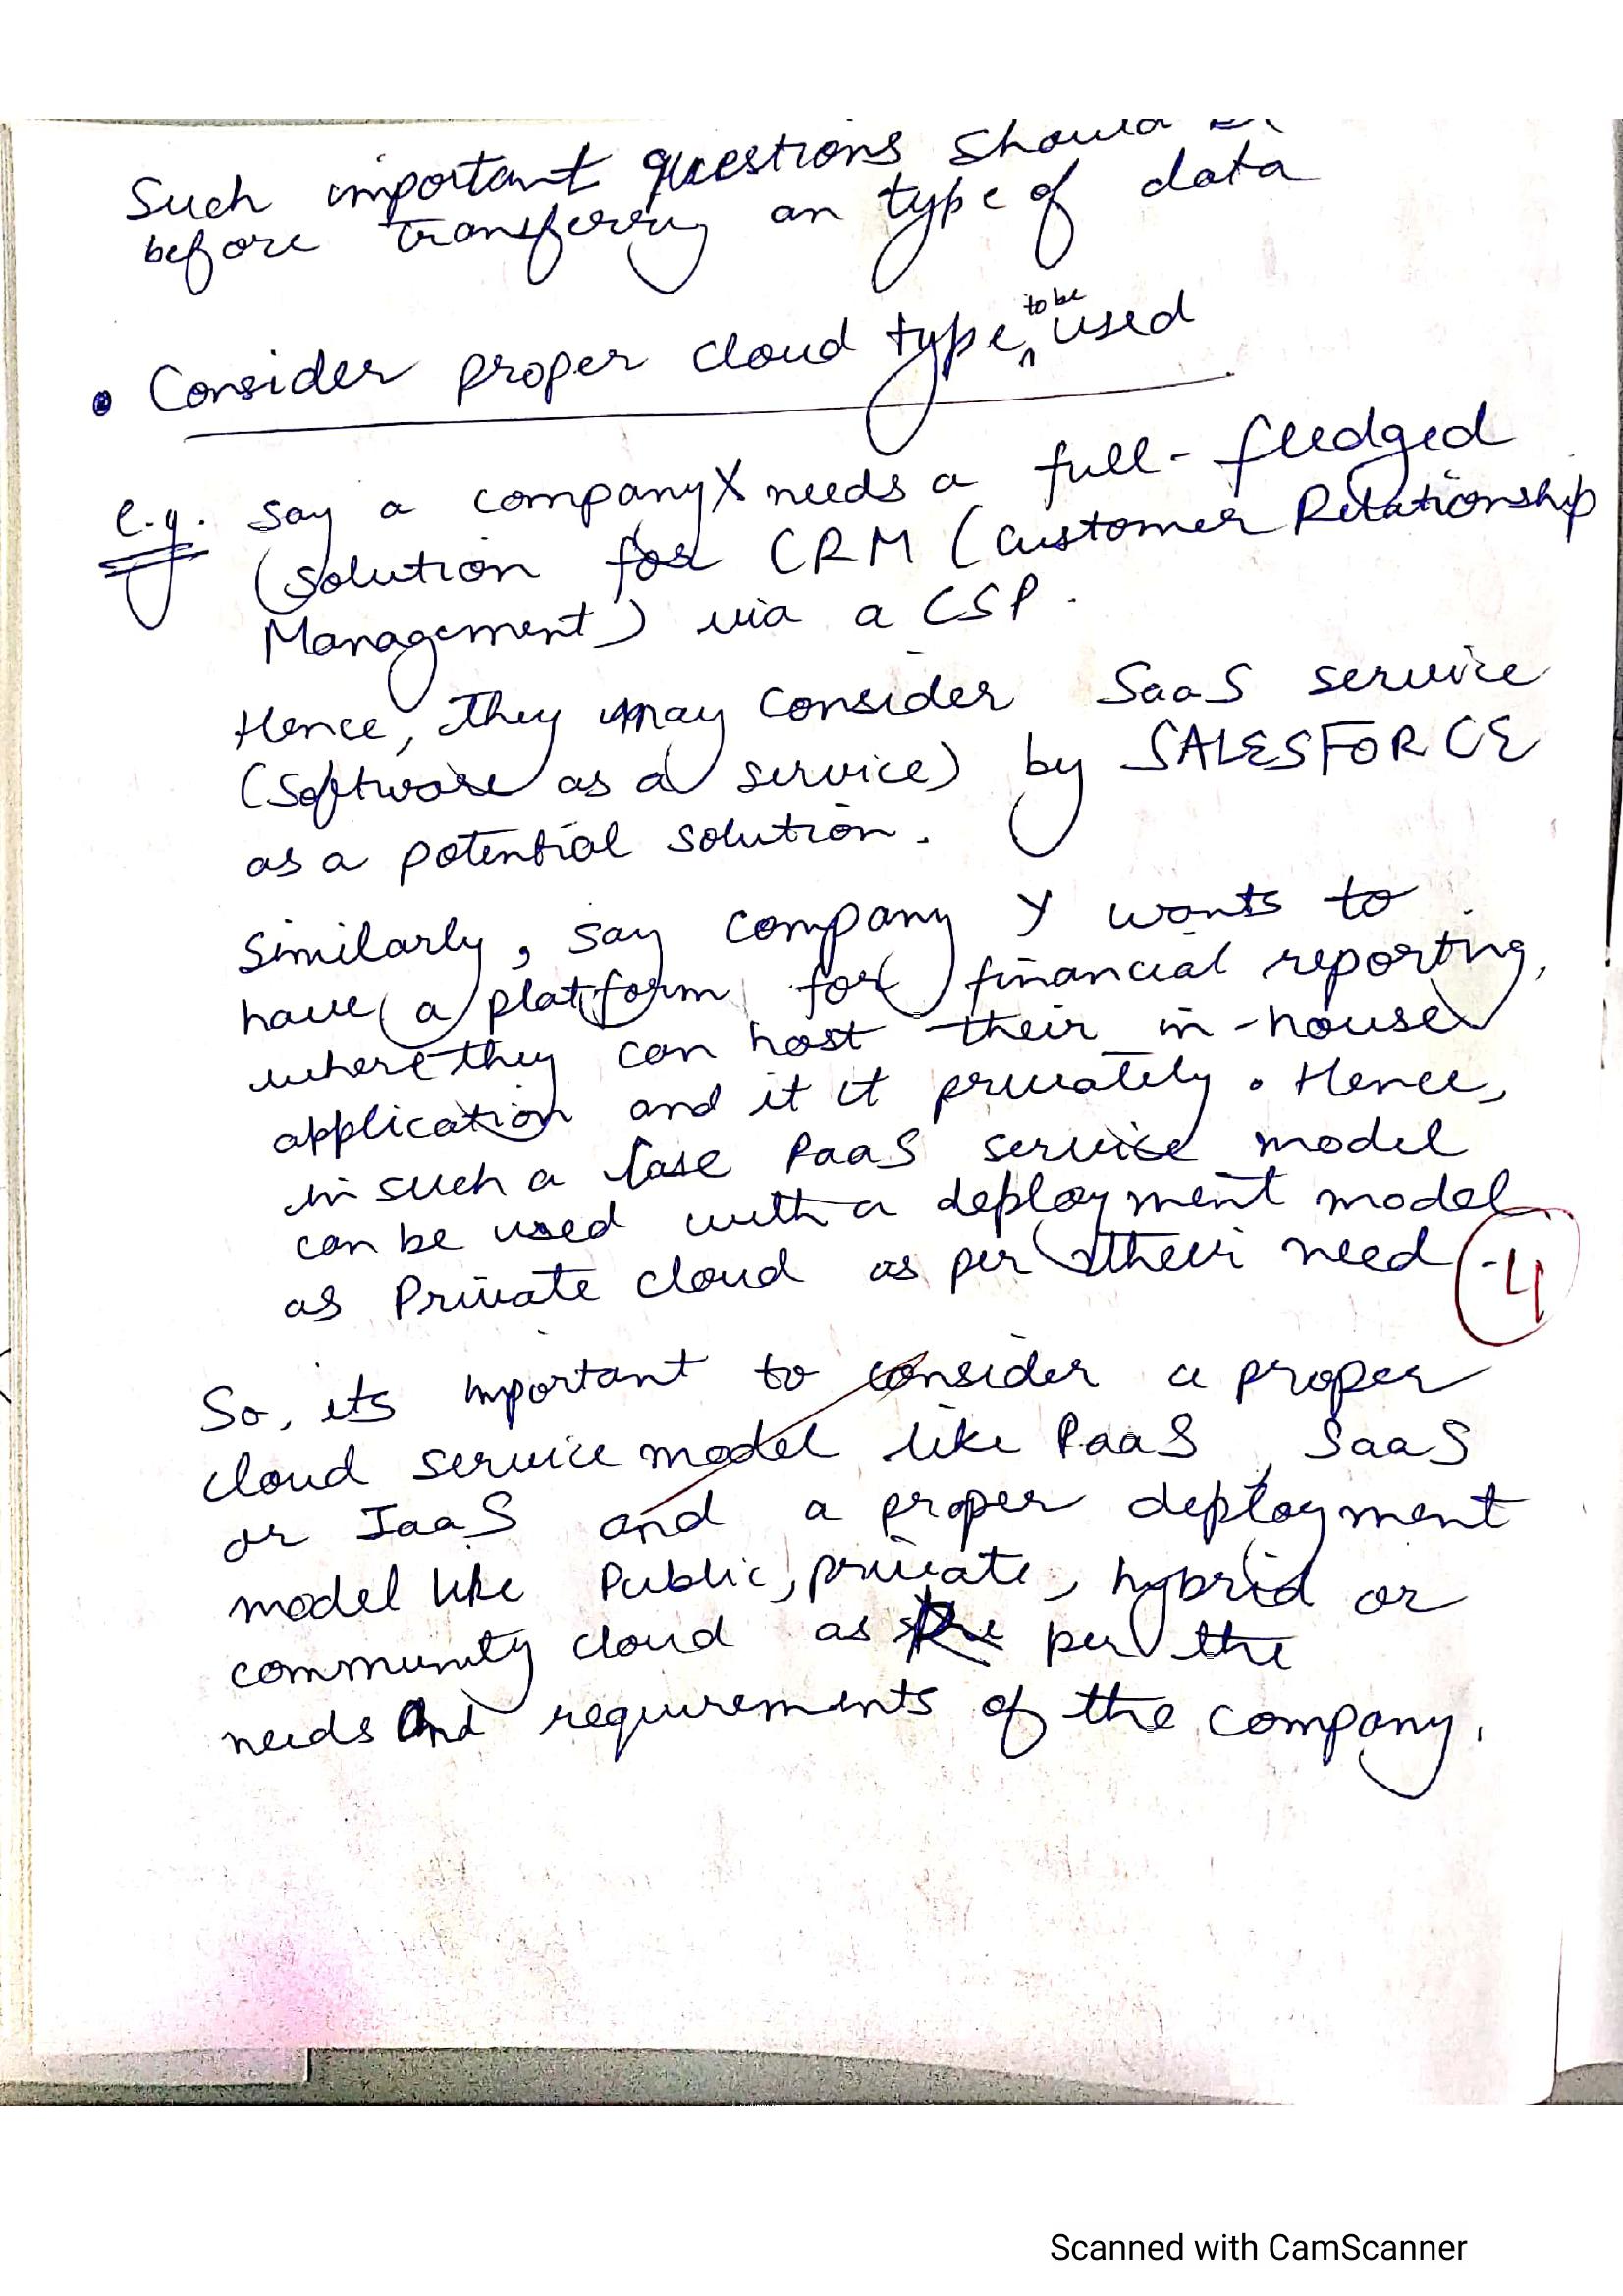 Such important questions should
before transferring an type of data
• Consider proper cloud type to be used
e.g. say a company X needs a full-fledged
solution for CRM (Customer Relationship
Management) via a CSP.
Hence, they may consider SaaS service
(Software as a service) by SALESFORCE
as a potential solution.
Similarly, say company Y wants to
have a platform for financial reporting,
where they can host their in-house
application and it it privately. Hence,
in such a case PaaS service model
can be used with a deployment model
as Private cloud as per their need
-4
So, its important to consider a proper
cloud service model like PaaS, SaaS
or IaaS and a proper deployment
model like Public, private, hybrid or
community cloud as per the
needs and requirements of the company.
Scanned with CamScanner